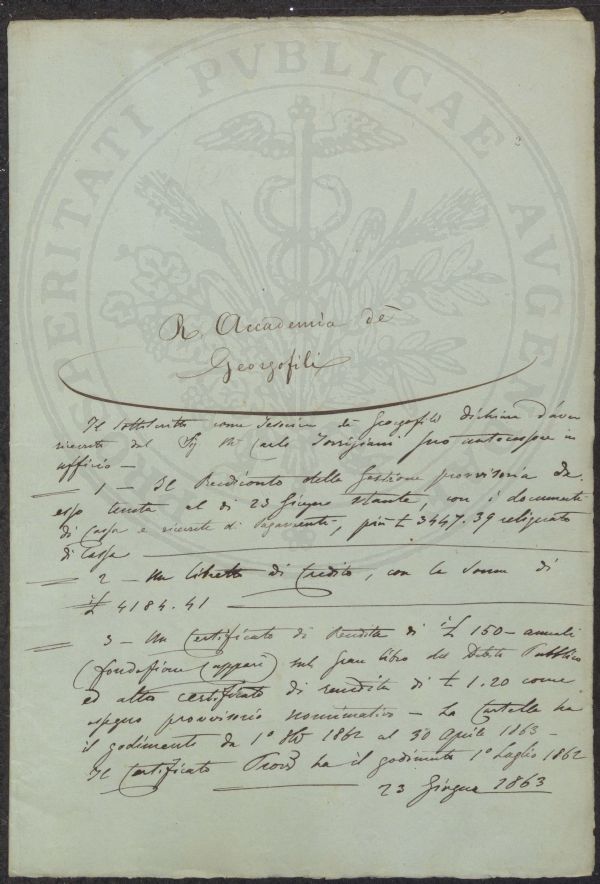 PROSPERITATI PVBLICAE AVGENDAE
2
R. Accademia de
Georgofili
Il sottoscritto come Tesoriere de Georgofili dichiara d'aver
ricevuto dal Sig Carlo Torrigiani suo antecessore in
ufficio —
1 – Il Rendiconto della Gestione provvisoria da
esso tenuta al di 23 Giugno stante, con i documenti
di Cassa e ricevute di Pagamenti, più £ 3447.39 reliquato
di Cassa
2 – Un libretto di Credito, con la somma di
£ 4184.41
3 – Un Certificato di Rendita di £ 150 – annuali
(fondazione Capperi) sul Gran Libro del Debito Pubblico
ed altro certificato di rendita di £ 1.20 come
assegno provvisorio nominativo – La Cartella ha
il godimento da 1º 1862 al 30 Aprile 1863 –
Il Certificato Provv ha il godimento 1º Luglio 1862
23 Giugno 1863